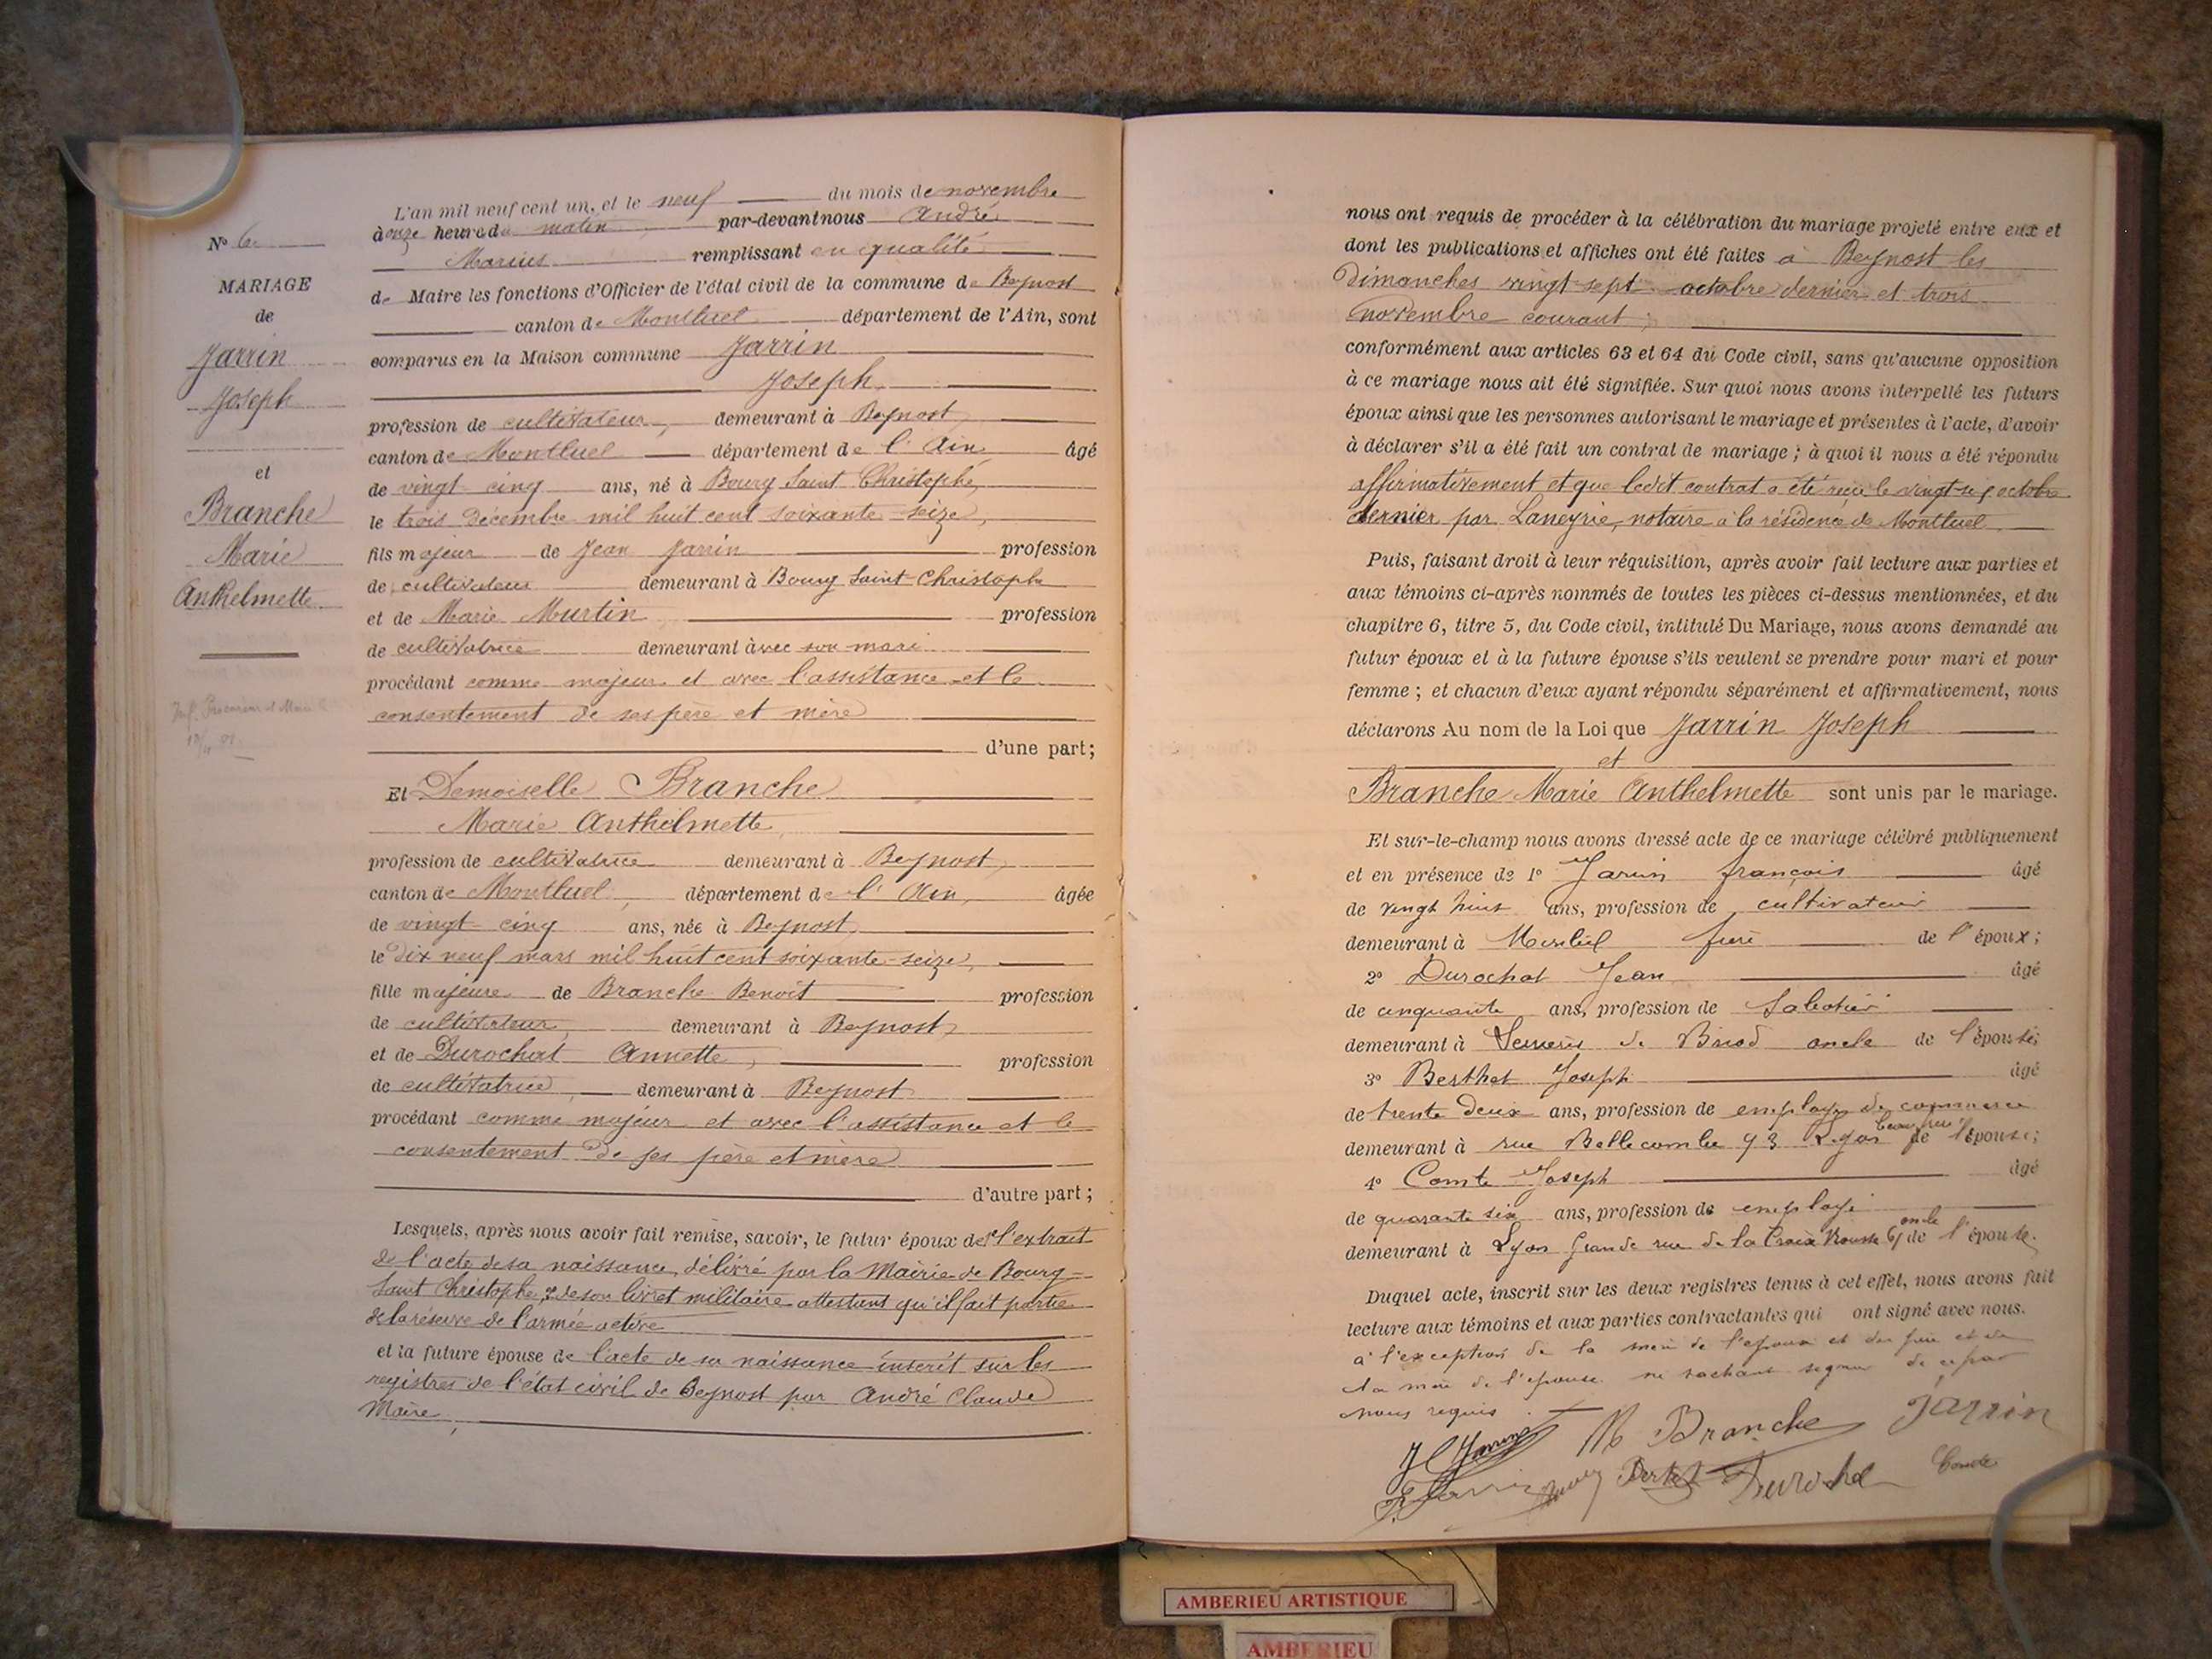 N° 6
MARIAGE
de
Jarrin
Joseph
et
Branche
Marie
Anthelmette
L'an mil neuf cent un, et le neuf du mois de novembre
à onze heure du matin par-devant nous André
Marius remplissant en qualité
de Maire les fonctions d'Officier de l'état civil de la commune de Beynost
canton de Montluel département de l'Ain, sont
comparus en la Maison commune Jarrin
Joseph
profession de cultivateur, demeurant à Beynost,
canton de Montluel département de l'Ain, âgé
de vingt cinq ans, né à Bourg Saint Christophe,
le trois décembre mil huit cent soixante-seize,
fils majeur de Jean Jarrin profession
de cultivateur demeurant à Bourg Saint-Christophe
et de Marie Murtin profession
de cultivatrice demeurant avec son mari
procédant comme majeur et avec l'assistance et le
consentement de ses père et mère
d'une part;
Et Demoiselle Branche
Marie Anthelmette,
profession de cultivatrice demeurant à Beynost,
canton de Montluel, département de l'Ain, âgée
de vingt cinq ans, née à Beynost,
le dix neuf mars mil huit cent soixante-seize,
fille majeure de Branche Benoit profession
de cultivateur, demeurant à Beynost,
et de Durochat Annette, profession
de cultivatrice, demeurant à Beynost
procédant comme majeur et avec l'assistance et le
consentement de ses père et mère
d'autre part;
Lesquels, après nous avoir fait remise, savoir, le futur époux de l'extrait
de l'acte de sa naissance, délivré par la Mairie de Bourg-
Saint Christophe, de son livret militaire attestant qu'il fait partie
de la réserve de l'armée active
et la future épouse de l'acte de sa naissance inscrit sur les
registres de l'état civil de Beynost par André Claude
Maire,
nous ont requis de procéder à la célébration du mariage projeté entre eux et
dont les publications et affiches ont été faites à Beynost les
Dimanches vingt sept octobre dernier et trois
novembre courant;
conformément aux articles 63 et 64 du Code civil, sans qu'aucune opposition
à ce mariage nous ait été signifiée. Sur quoi nous avons interpellé les futurs
époux ainsi que les personnes autorisant le mariage et présentes à l'acte, d'avoir
à déclarer s'il a été fait un contrat de mariage; à quoi il nous a été répondu
affirmativement et que ledit contrat a été reçu le octobre
dernier par Laneyrie, notaire à la résidence de Montluel
Puis, faisant droit à leur réquisition, après avoir fait lecture aux parties et
aux témoins ci-après nommés de toutes les pièces ci-dessus mentionnées, et du
chapitre 6, titre 5, du Code civil, intitulé Du Mariage, nous avons demandé au
futur époux et à la future épouse s'ils veulent se prendre pour mari et pour
femme; et chacun d'eux ayant répondu séparément et affirmativement, nous
déclarons Au nom de la Loi que Jarrin Joseph
et
Branche Marie Anthelmette sont unis par le mariage.
Et sur-le-champ nous avons dressé acte de ce mariage célébré publiquement
et en présence de 1° Jarrin françois âgé
de vingt huit ans, profession de cultivateur
demeurant à frère de l'époux;
2° Durochat Jean âgé
de cinquante ans, profession de Sabotier
demeurant à de oncle de l'épouse;
3° Berthet Joseph âgé
de trente deux ans, profession de employé de commerce
demeurant à rue Bellecombe 93 Lyon de l'épouse;
4° Comte Joseph âgé
de quarante six ans, profession de employé
oncle
demeurant à Lyon Grande rue de la Croix Rousse de l'épouse.
Duquel acte, inscrit sur les deux registres tenus à cet effet, nous avons fait
lecture aux témoins et aux parties contractantes qui ont signé avec nous.
à l'exception de la mère de l'époux et du père et de
la mère de l'épouse ne sachant signer de ce par
nous requis.
M Branche Jarrin
Comte
AMBERIEU ARTISTIQUE
AMBERIEU